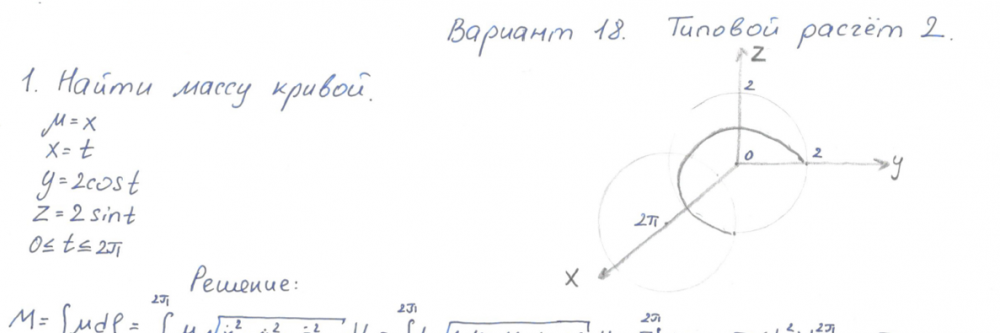 Вариант 18. Типовой расчёт 2.
1. Найти массу кривой.
μ = x
x = t
y = 2cost
z = 2 sint
0 ≤ t ≤ 2π
z
2
0
2
y
2π
x
Решение:
M = ∫μdl =